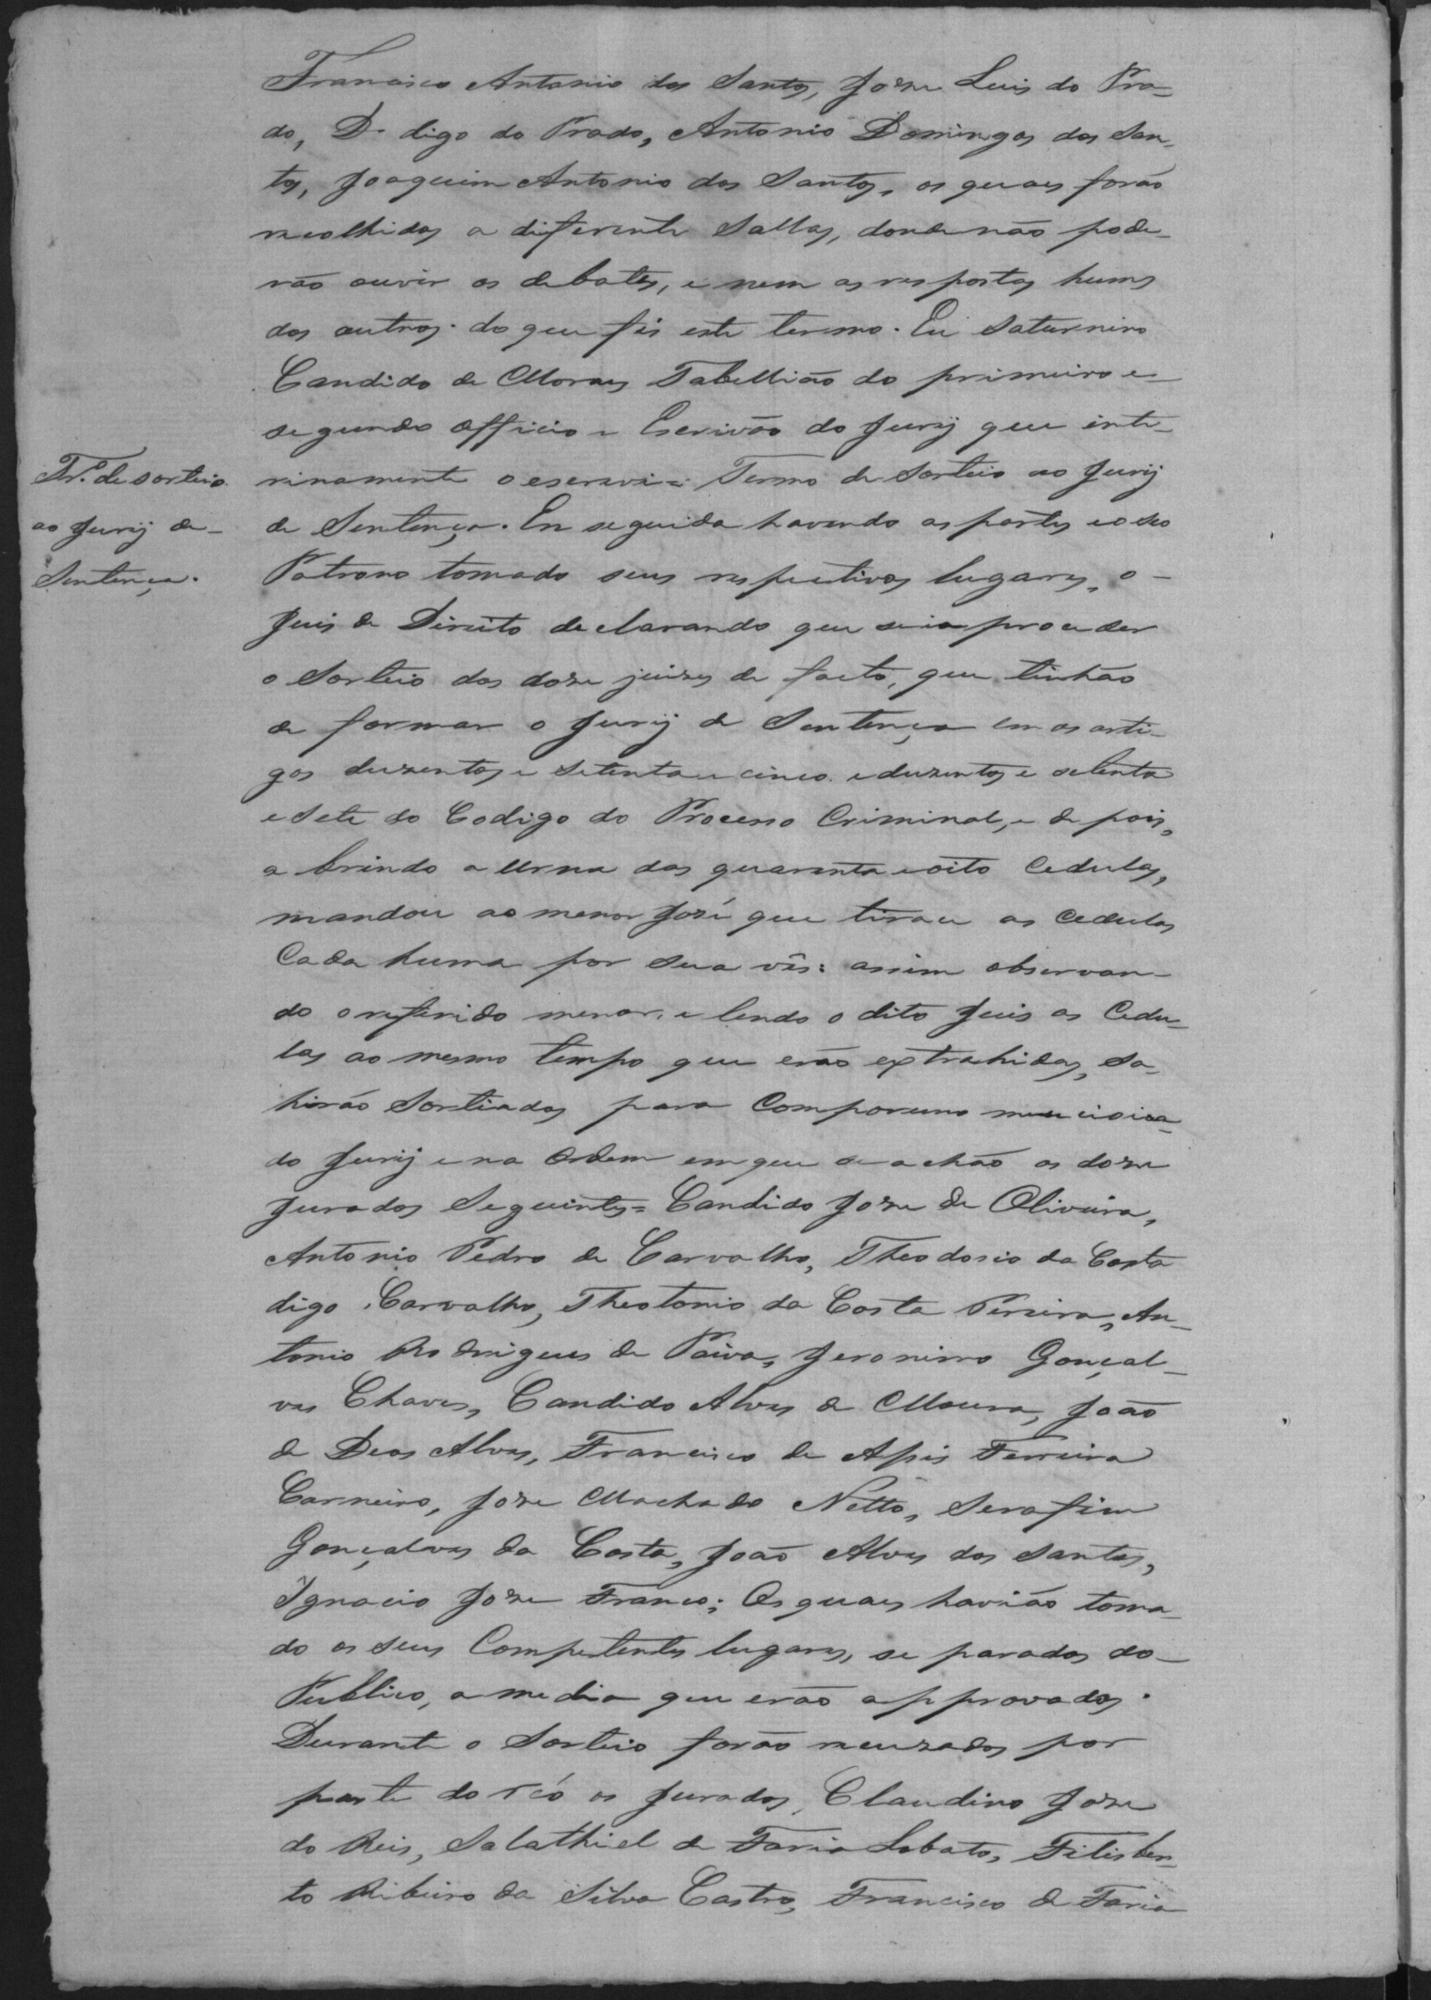 Francisco Antonio dos Santos, Jose Luis do Pra-
do, D. digo do Prado, Antonio Domingos dos San-
tos, Joaquim Antonio dos Santos, os quaes forão
recolhidos a diferente Sallas, donde não pode-
rão ouvir os debates, e nem as respostas huns
dos outros. do que fis este termo. Eu Saturnino
Candido de Moraes Tabellião do primeiro e
segundo officio e Escrivão do Jurij que inte-
rinamente o escrevi = Termo de Sorteio ao Jurij
Tr.º de sorteio
ao Jurij de
Sentença.
de Sentença. En seguida havendo as partes e o seo
Patrono tomado seus respectivos lugares, o
Juis de Direito declarando que se ia proceder
o Sorteio dos doze juizes de facto, que tinhão
de formar o Jurij de Sentença em os arti-
gos duzentos e setenta e cinco e duzentos e setenta
e sete do Codigo do Processo Criminal, e depois,
abrindo a urna das quarenta e oito Cedulas,
mandou ao menor José que tirace as Cedulas
Cada huma por sua vês: assim observan-
do o referido menor, e lendo o dito Juis as Cedu-
las ao mesmo tempo que erão extrahidas, sa-
hirão Sortiados para Comporem o
do Jurij e na Ordem em que se achão os doze
Jurados Seguintes = Candido Jose de Oliveira,
Antonio Pedro de Carvalho, Theodosio da Costa
digo Carvalho, Theotonio da Costa Pereira, An-
tonio Rodrigues de Paiva, Jeronimo Gonçal-
ves Chaves, Candido Alves de Moura, João
de Deos Alves, Francisco de Apis Ferreira
Carneiro, Jose Machado Netto, Serafim
Gonçalves da Costa, João Alves dos Santos,
Ignacio Jose Franco; Os quaes havião toma-
do os seus Competentes lugares, separados do
Publico, a media que erão approvados.
Durante o Sorteio forão recuzados por
parte do reó os Jurados, Claudino Jose
do Reis, Salathiel de Faria Lobato, Filisber-
to Ribeiro da Silva Castro, Francisco de Faria